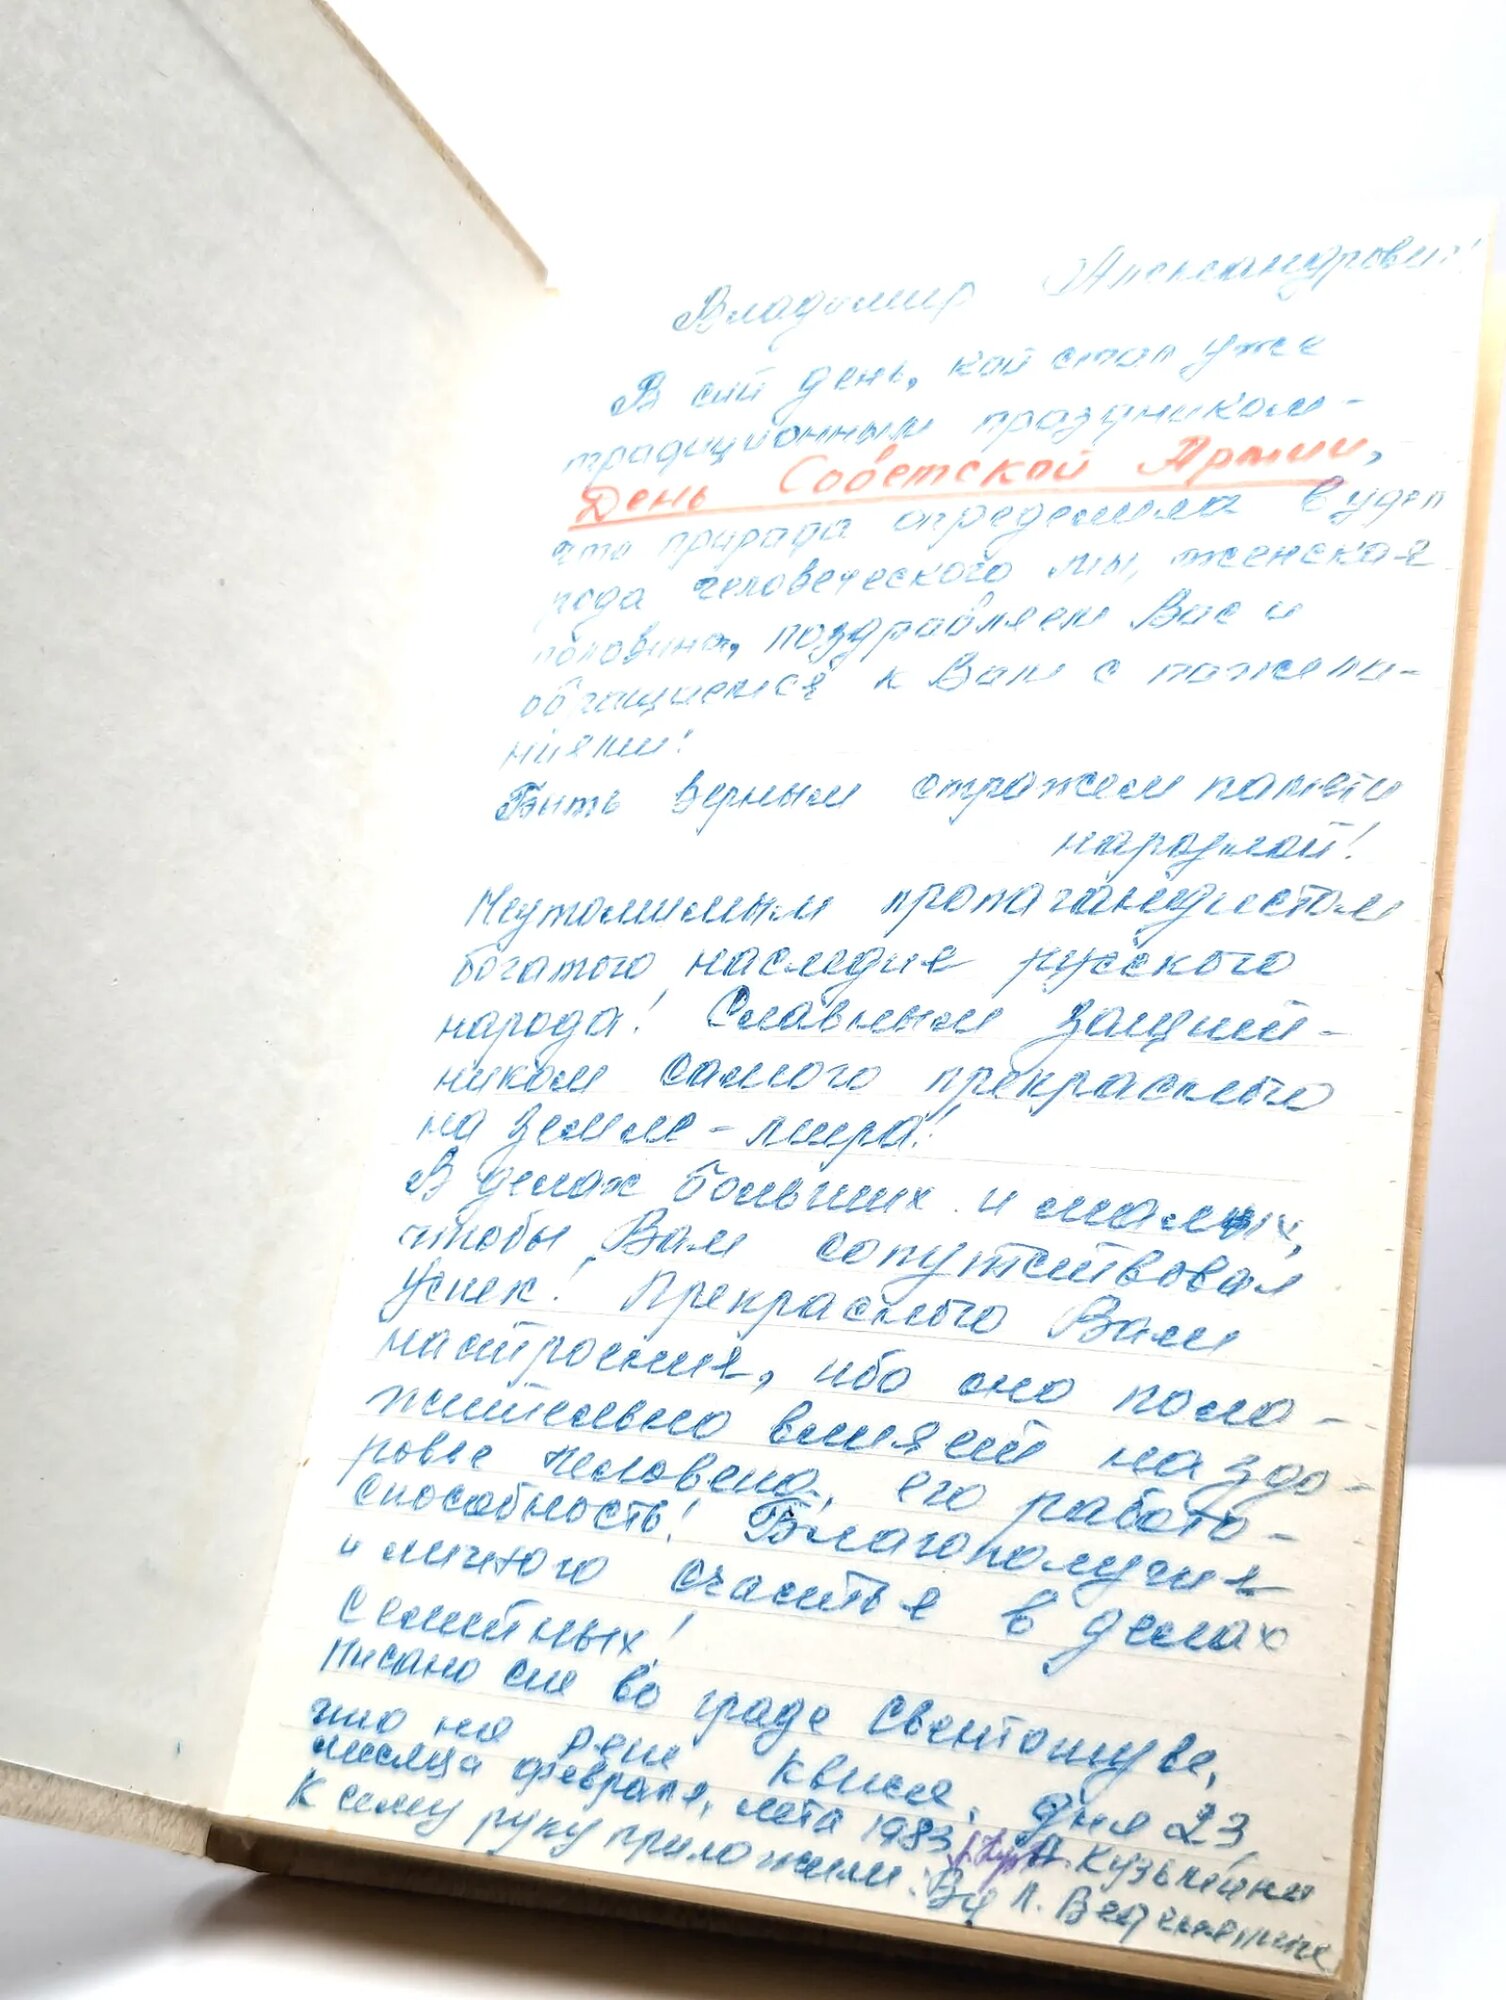 Владимир Александрович!
В сий день, кой стал уже
традиционным праздником -
День Советской Армии,
что природа определила в удел
рода человеческого мы, женская
половина, поздравляем Вас и
обращаемся к Вам с пожела-
ниями!
Быть верным стражем памяти
народной!
Неутомимым пропагандистом
богатого наследия русского
народа! Славным защит-
ником самого прекрасного
на земле - мира!
В делах больших и малых,
чтобы Вам сопутствовал
успех! Прекрасного Вам
настроения, ибо оно поло-
жительно влияет на здо-
ровье человека, его работо-
способность! Благополучия
и личного счастья в делах
семейных!
Писано сие во граде Свентошуве,
что на реке Квиса, дня 23,
месяца февраля, лета 1983
К сему руку приложили: А. Кузьмина
Л.